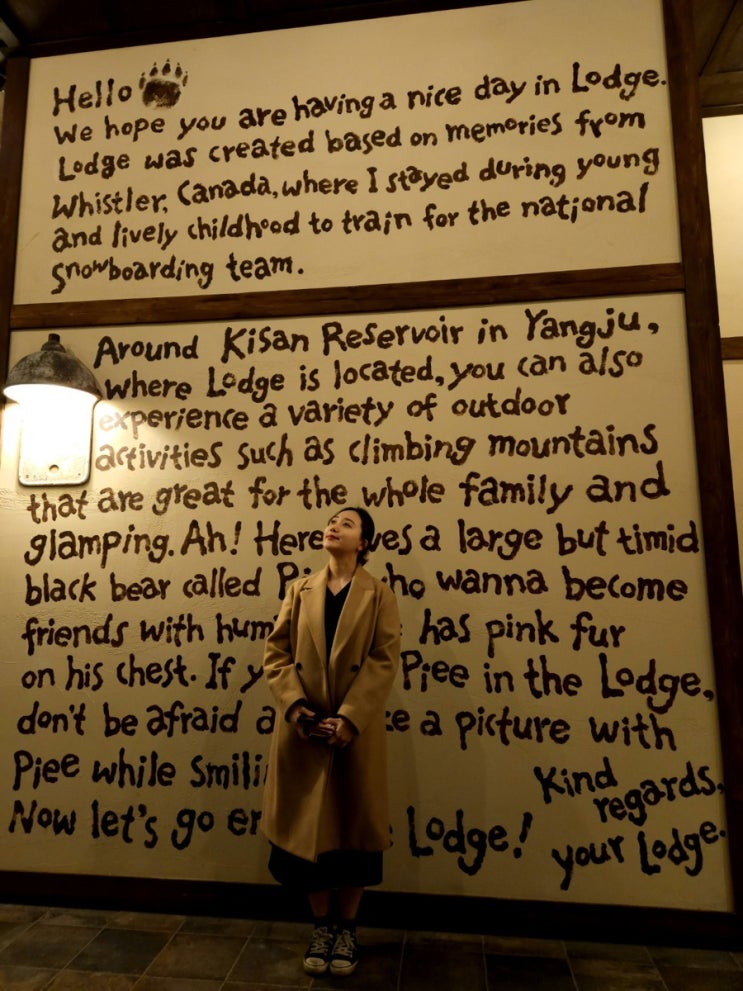 Hello
We hope you are having a nice day in Lodge.
Lodge was created based on memories from
Whistler, Canada, where I stayed during young
and lively childhood to train for the national
snowboarding team.
Around Kisan Reservoir in Yangju,
where Lodge is located, you can also
experience a variety of outdoor
activities such as climbing mountains
that are great for the whole family and
glamping. Ah! Here a large but timid
black bear called wanna become
friends with has pink fur
on his chest. If Piee in the Lodge,
don't be afraid a picture with
Piee while
Now let's go Lodge!
Kind
regards,
your Lodge.